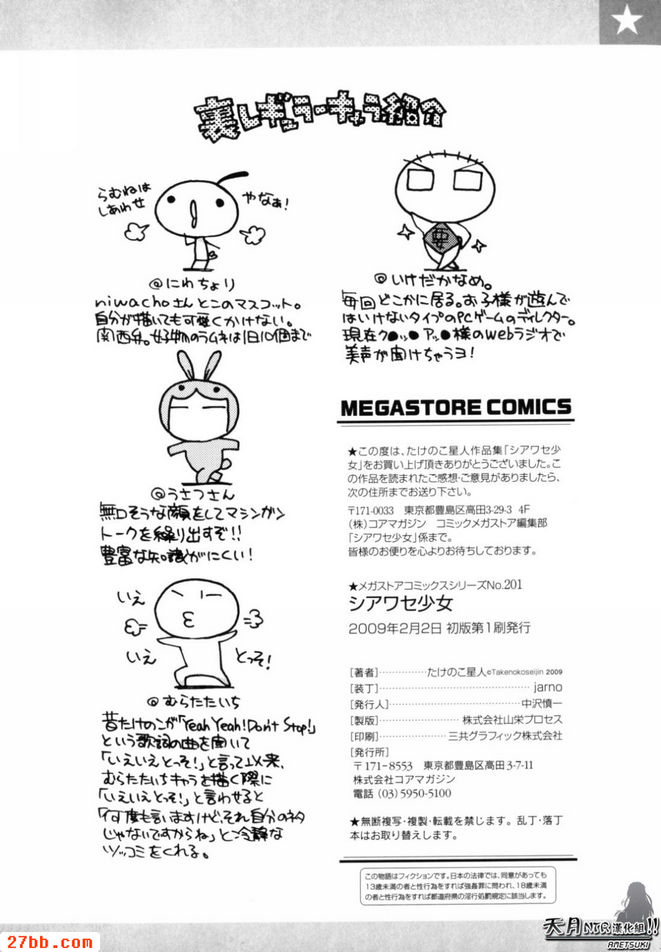 裏レギュラーキャラ紹介
らむねは
しあわせ
やなぁ!
@にわちょり
niwachoさんとこのマスコット。
自分が描いても可愛くかけない。
関西弁。好物のラムネは1日10個まで
@いけだかなめ。
毎回どこかに居る。お子様が遊んで
はいけないタイプのPCゲームのディレクター。
現在ク●ッ● アッ●様のWebラジオで
美声が聞けちゃうヨ!
@うさつさん
無口そうな顔をしてマシンガン
トークを繰り出すぞ!!
豊富な知識がにくい!
いえ
いえ
とっそ!
@むらたたいち
昔たけのこが「Yeah Yeah! Don't Stop!」
という歌詞の曲を聞いて
「いえいえとっそ!」と言って以来、
むらたたいちキャラを描く際に
「いえいえとっそ!」と言わせると
「何度も言いますけど、それ自分のネタ
じゃないですからね」と冷静な
ツッコミをくれる。
MEGASTORE COMICS
★この度は、たけのこ星人作品集「シアワセ少
女」をお買い上げ頂きありがとうございました。こ
の作品を読まれたご感想・ご意見がありましたら、
次の住所までお送り下さい。
〒171-0033 東京都豊島区高田3-29-3 4F
(株)コアマガジン コミックメガストア編集部
「シアワセ少女」係まで。
皆様のお便りを心よりお待ちしております。
★メガストアコミックスシリーズNo.201
シアワセ少女
2009年2月2日 初版第1刷発行
[著者]‥‥‥‥‥たけのこ星人©Takenokoseijin 2009
[装丁]‥‥‥‥‥jarno
[発行人]‥‥‥‥‥中沢慎一
[製版]‥‥‥‥‥株式会社山栄プロセス
[印刷]‥‥‥‥‥三共グラフィック株式会社
[発行所]
〒171-8553 東京都豊島区高田3-7-11
株式会社コアマガジン
電話 (03)5950-5100
★無断複写・複製・転載を禁じます。乱丁・落丁
本はお取り替えします。
この物語はフィクションです。日本の法律では、同意があっても
13歳未満の者と性行為をすれば強姦罪に問われ、18歳未満の者
と性行為をすれば都道府県の淫行処罰規定に該当します。
27bb.com
天月NTR漢化組!!
AMETSUKI